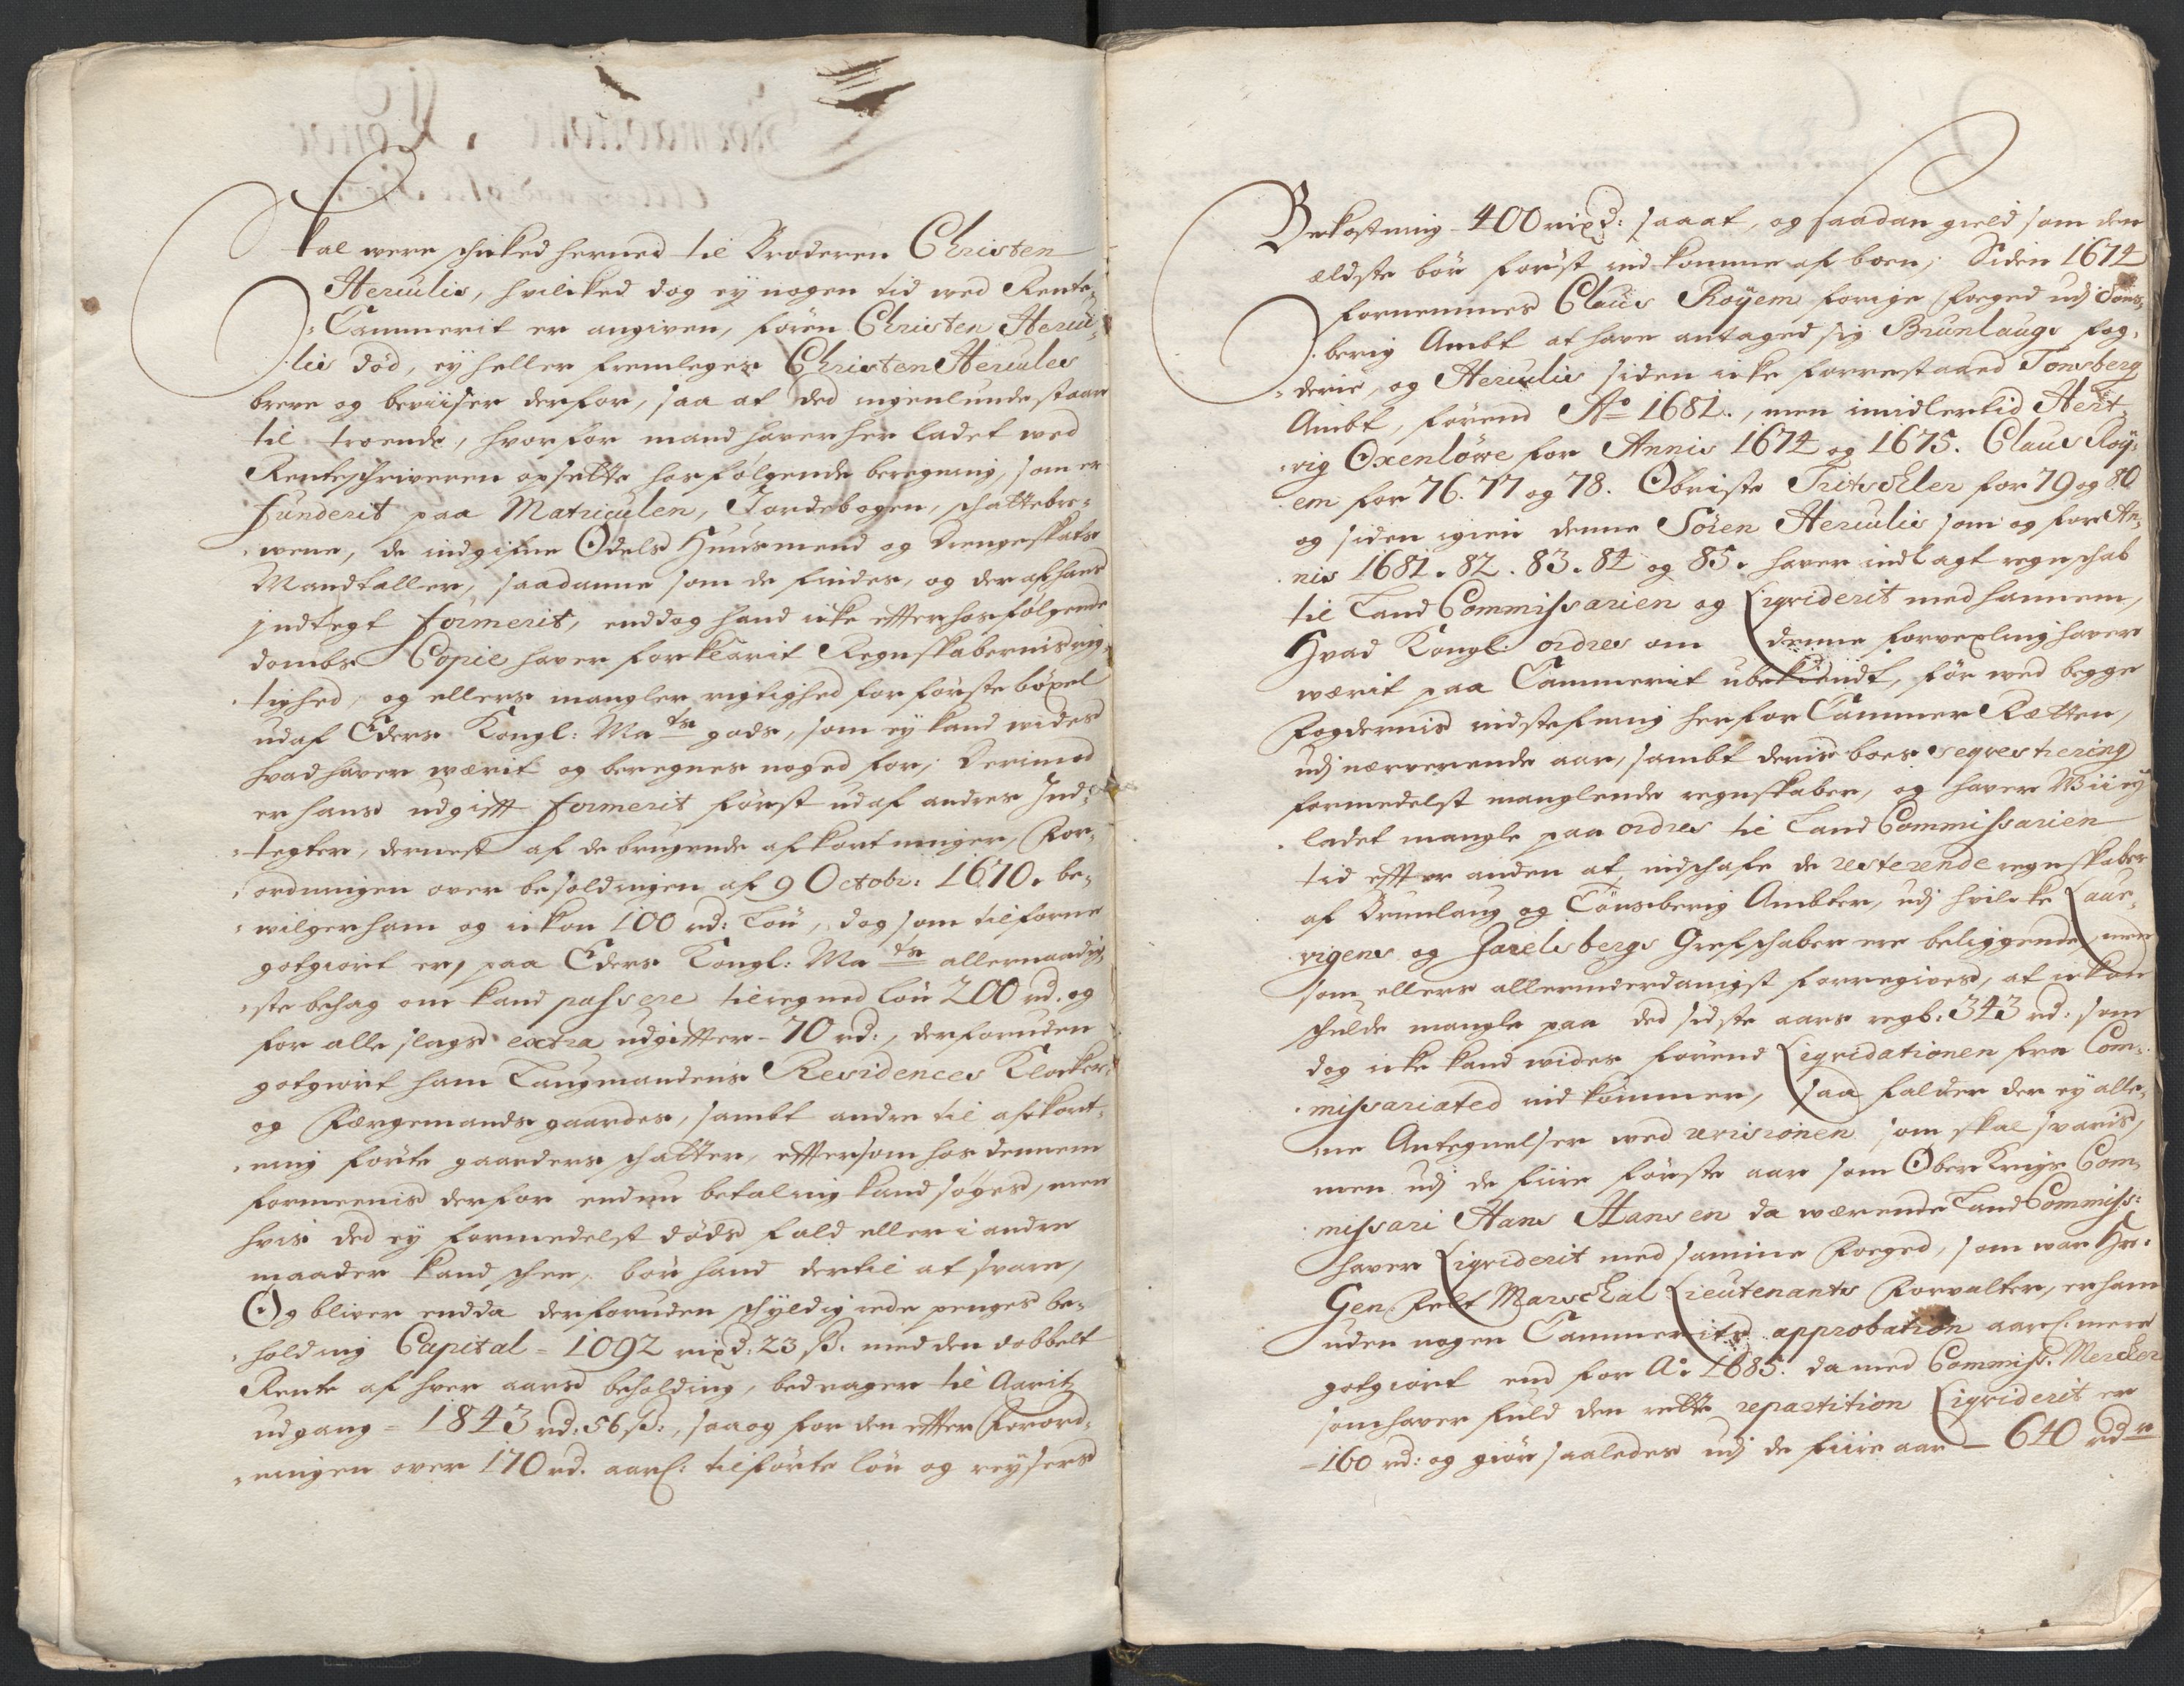 skal were schicked herned til Broderen Christen
Herculis, hvilcked dog ey nogen tid wed Rente-
Cammerit er angiven, føren Christen Hercu-
lis død, ey heller fremlegges Christen Hercules
breve og beviiser derfor, saa at ded ingenlunde staar
til troende, hvorfor mand haver her ladet wed
Renteschriveren opsette hosfølgende beregning, som er
funderit paa Matriculen, Jordebogen, schattebre-
wene, de indgifne Odels Huusmend og Drengeskats
Mandtaller, saadanne som de findes, og deraf hans
jndtegt formerit, enddog hand icke effter hosfølgende
dombs Copie haver forklarit Regnskabernis rig-
tighed, og ellers mangler rigtighed for første bøxel
udaf Eders Kongl: Ma:ts gods, som ey kand wides
hvad haver wærit og beregnes noged for; Derimod
er hans udgifft formerit først udaf andres Ind-
tegter, dernest af de brugende afkortninger, For-
ordningen over besoldningen af 9 Octobr: 1670. be-
wilger ham og ickon 100 rd: Løn, dog som tilforne
gotgiort er, paa Eders Kongl: Ma:ts allernaadig-
ste behag om kand passere tilregned løn 200 rd. og
for alle slags extra udgiffter - 70 rd:, derforuden
gotgiort ham Laugmandens Residences Klocker-
og Færgemands gaardes, sambt andre til afkort-
ning førte gaarders schatter, efftersom hos dennem
formeenis derfor endnu betaling kand søges, men
hvis ded ey formedelst døds fald eller i andre
maader kand schee, bør hand dertil at svare,
Og bliver endda derforuden schyldig rede penges be-
holding Capital = 1092 rixd: 23 s. med den dobbelt
Rente af hver aars beholding, bedrager til Aaritz
udgang = 1843 rd: 56 s:, saa og for den effter Forord-
ningen over 170 rd. aarl: tilførte løn og reysers
Bekostning - 400 rixd: saaat, og saadan gield som den
ældste bør først ind komme af boen; Siden 1674
fornemmes Claus Røyem forige foged udj Tøns-
berig Ambt at have antaged sig Brunlaugs fog-
derie, og Herculis siden icke forrestaaed Tonsberg
Ambt, førend Ao 1681., men imidlertid Hert-
vig Oxenløwe for Annis 1674 og 1675. Claus Røy-
em for 76. 77 og 78. Obriste Tritschler for 79 og 80
og siden igien denne Søren Herculis som og for An-
nis 1681. 82. 83. 84 og 85. haver indlagt regnschab
til Land Commissarien og Liqviderit med hannem,
Hvad Kongl: ordres om denne forvexling haver
wærit paa Cammerit ubekiendt, før wed begge
Fogdernis indstefning herfor Cammer Rætten,
udj nærverende aar, sambt deris boes seqvestrering
formedelst manglende regnskaber, og haver Wii ey
ladet mangle paa ordres til Land Commissarien
tid effter anden at indschafe de resterende regnskaber
af Brunlaug og Tønsberig Ambter, udj hvilcke Laur-
vigens og Jarelsbergs Grefschaber ere beliggende, men
som ellers allerunderdanigst forregives, at ickon
schulde mangle paa ded sidste aars regb: 343 rd: som
dog icke kand wides førend Liqvidationen fra Com-
missariated ind kommer, saa falder der ey alle-
ne Antegnelser wed revisionen som skal svaris,
men udj de fiire første aar som Ober Krigs Com-
missari Hans Hansen da wærende Land Commiss:
haver Liqviderit med samme Foeged, som war Hr.
Gen: Felt Marschal Lieutenants Forvalter, er ham
uden nogen Cammerits approbation aarl: mere
gotgiort end for Ao: 1685. da med Commiss. Mercker
som haver fuld den rette repartition Liqviderit er
- 160 rd: og giør saaledes udj de fiire aar - 640 rdr